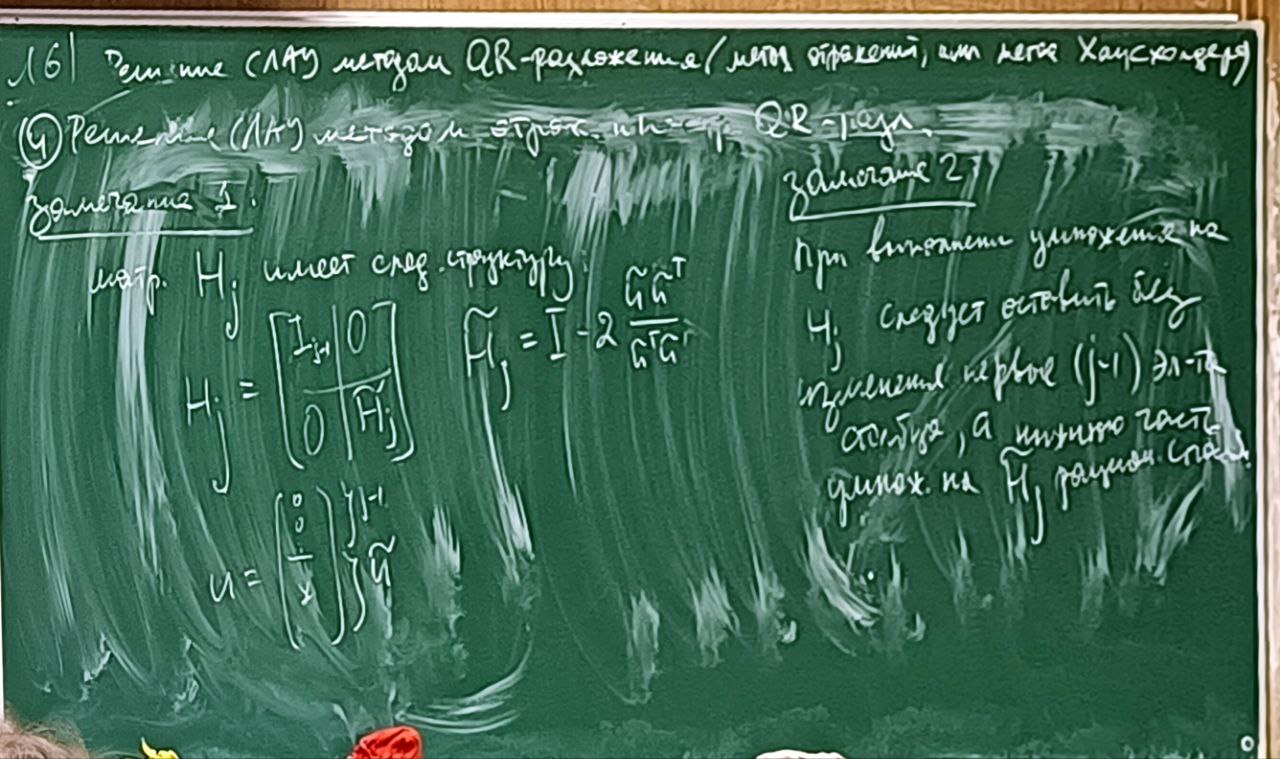 16) Решение СЛАУ методом QR-разложения (метод отражений, или метод Хаусхолдера)
④ Решение СЛАУ методом QR-разл.
Замечание 1.
матр. H_j имеет след. структуру:
H_j = [I_{j-1} | 0; 0 | H̃_j]
H̃_j = I - 2 (ũũᵀ)/(ũᵀũ)
u = (0 0 x) } j-1 } ũ
Замечание 2
При выполнении умножения на
H_j следует оставить без
изменения первые (j-1) эл-та
столбца, а нижнюю часть
умнож. на H̃_j